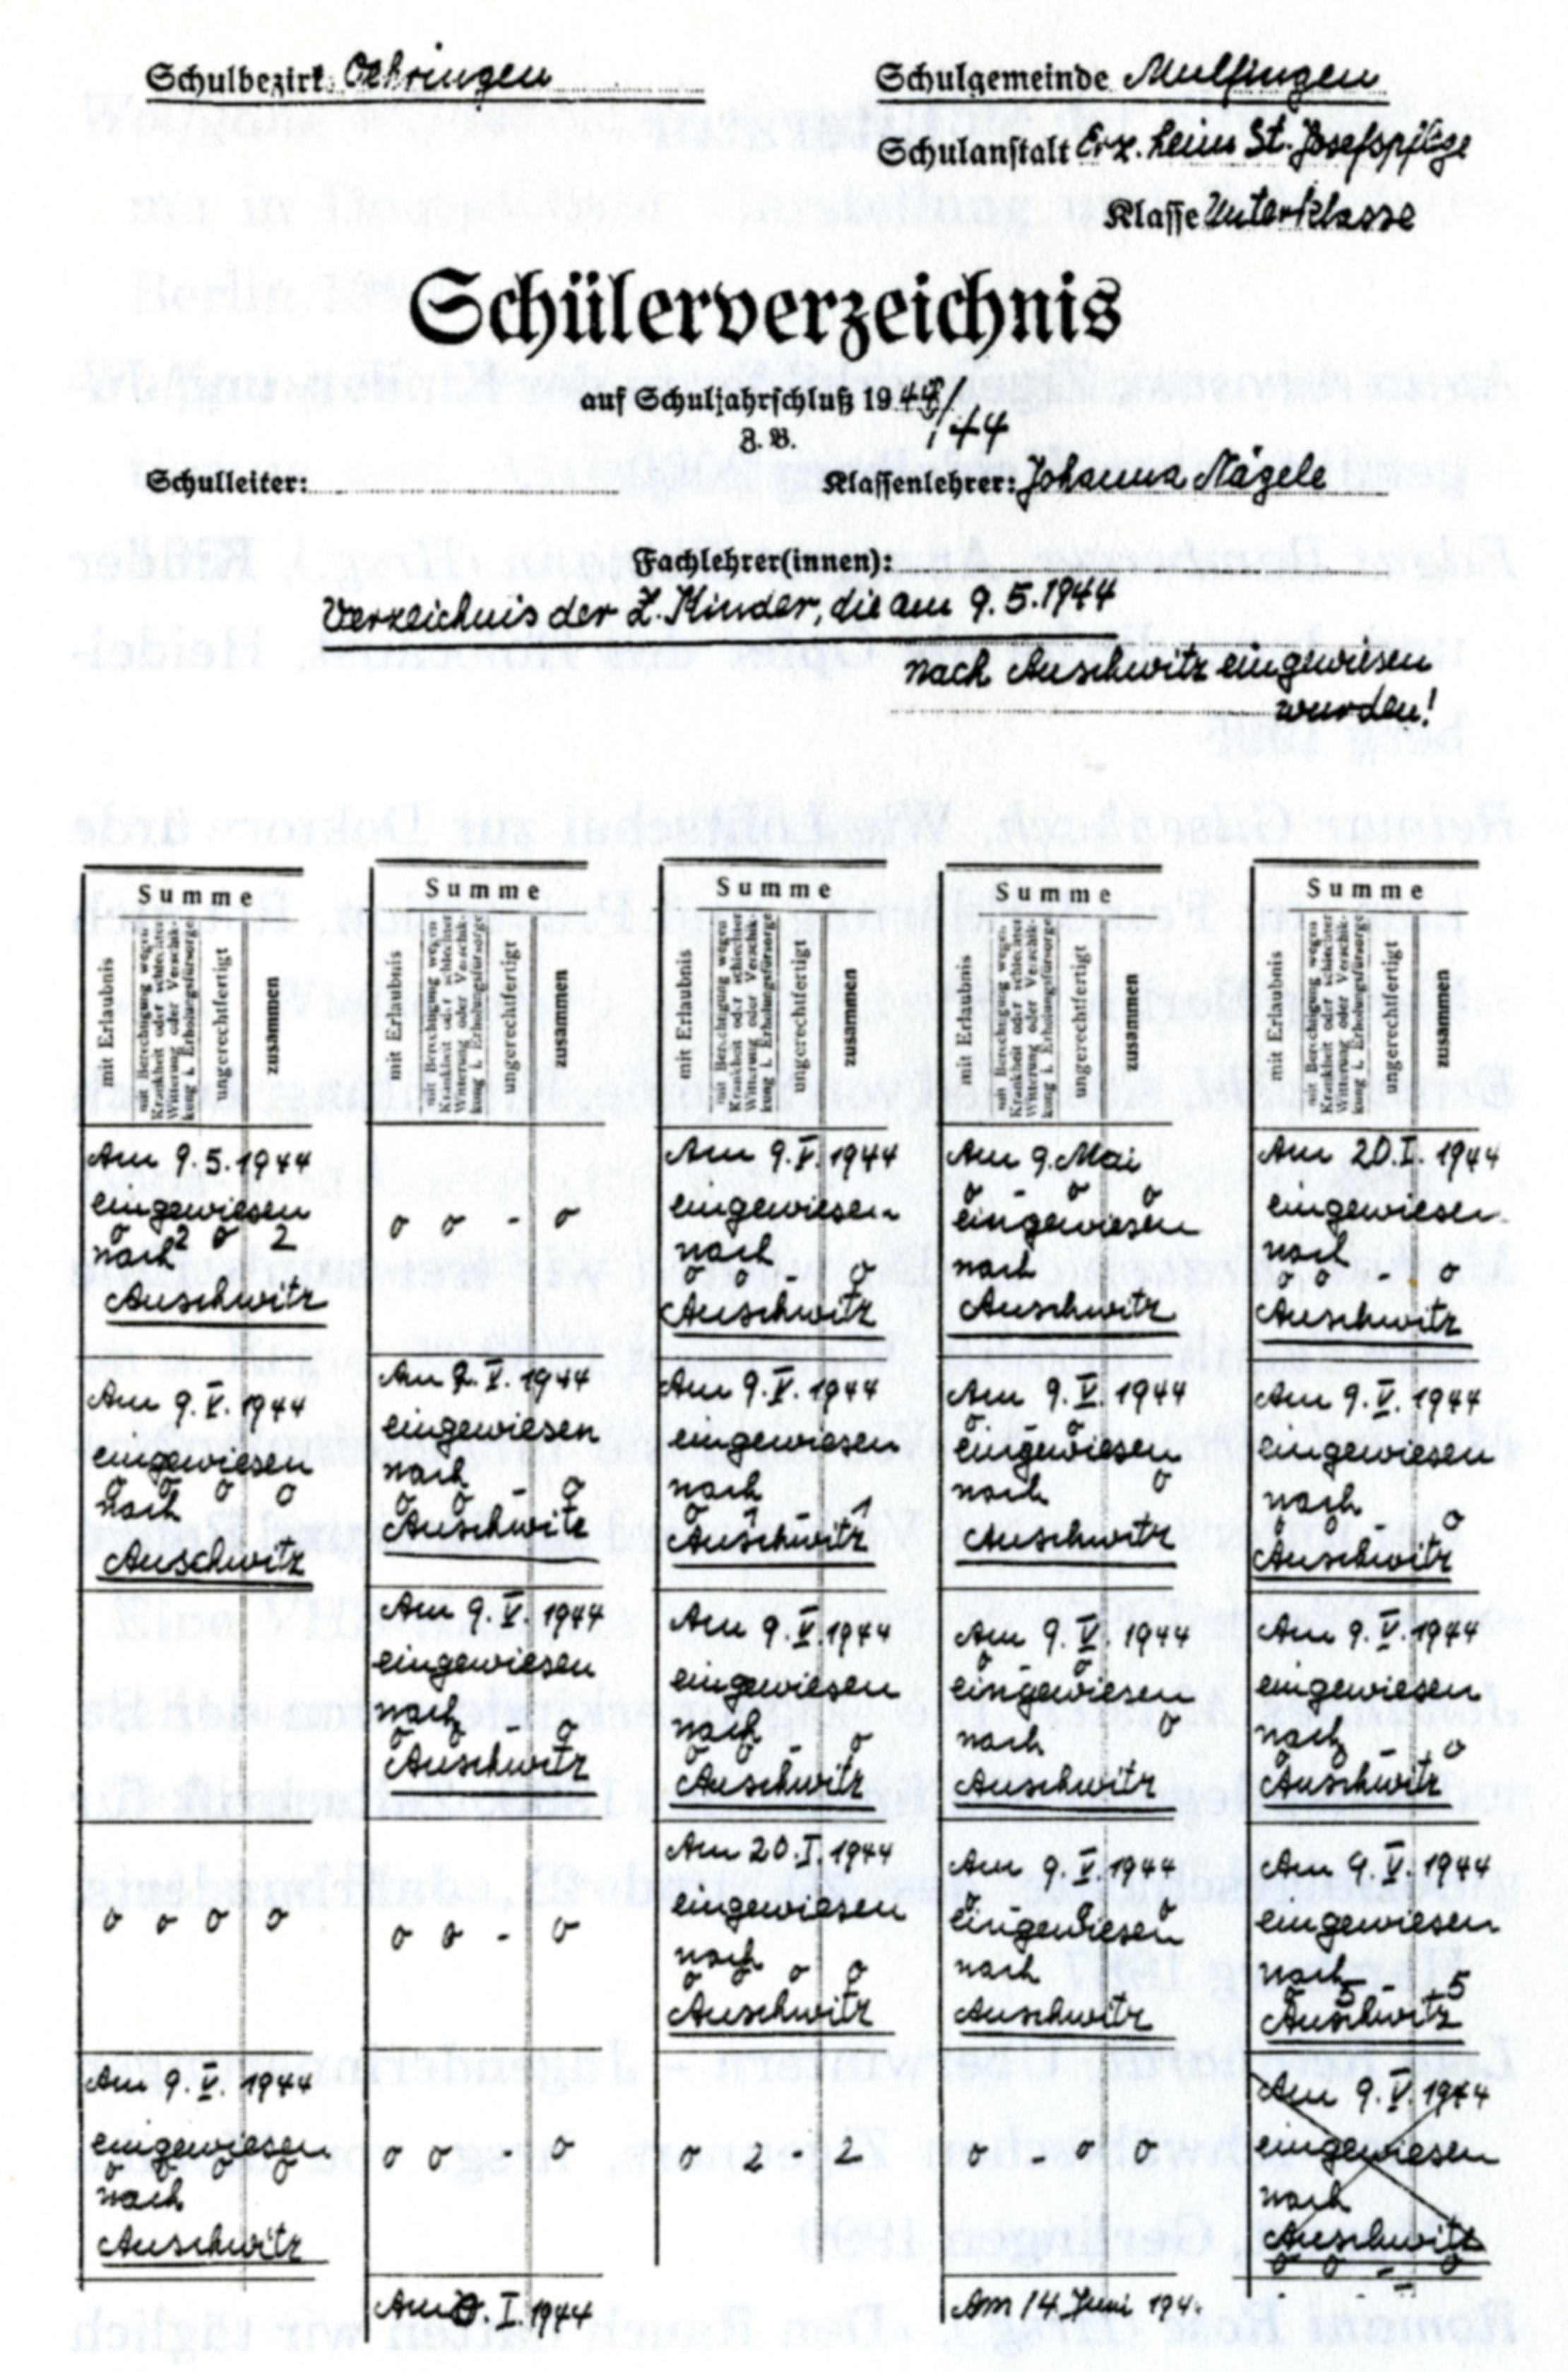 Schulbezirk: Oehringen
Schulgemeinde Mulfingen
Schulanstalt Erz. heim St. Josefspflege
Klasse Unterklasse
Schülerverzeichnis
auf Schuljahrschluß 1943/44
Z. B.
Schulleiter:
Klassenlehrer: Johanna Nägele
Fachlehrer(innen):
Verzeichnis der Z. Kinder, die am 9.5.1944
nach Auschwitz eingewiesen
wurden!
Summe
mit Erlaubnis
mit Berechtigung wegen
Krankheit oder schlechter
Witterung oder Verschik-
kung i. Erholungsfürsorge
ungerechtfertigt
zusammen
Am 9.5.1944
eingewiesen
o 2 o 2
nach
Auschwitz
Am 9.V.1944
eingewiesen
o o o o
nach
Auschwitz
o o o o
Am 9.V.1944
eingewiesen
o o o o
nach
Auschwitz
Summe
mit Erlaubnis
mit Berechtigung wegen
Krankheit oder schlechter
Witterung oder Verschik-
kung i. Erholungsfürsorge
ungerechtfertigt
zusammen
o o - o
Am 9.V.1944
eingewiesen
nach
o o - o
Auschwitz
Am 9.V.1944
eingewiesen
nach
o o - o
Auschwitz
o o - o
o o - o
Am .I.1944
Summe
mit Erlaubnis
mit Berechtigung wegen
Krankheit oder schlechter
Witterung oder Verschik-
kung i. Erholungsfürsorge
ungerechtfertigt
zusammen
Am 9.V.1944
eingewiesen
nach
o o - o
Auschwitz
Am 9.V.1944
eingewiesen
nach
o 1 - 1
Auschwitz
Am 9.V.1944
eingewiesen
nach
o o - o
Auschwitz
Am 20.I.1944
eingewiesen
nach
o o o o
Auschwitz
o 2 - 2
Summe
mit Erlaubnis
mit Berechtigung wegen
Krankheit oder schlechter
Witterung oder Verschik-
kung i. Erholungsfürsorge
ungerechtfertigt
zusammen
Am 9. Mai
o - o o
eingewiesen
nach
Auschwitz
Am 9.V.1944
o - o
eingewiesen
nach o
Auschwitz
Am 9.V.1944
o - o
eingewiesen
nach o
Auschwitz
Am 9.V.1944
eingewiesen
nach
Auschwitz
o - o o
Am 14. Juni 194.
Summe
mit Erlaubnis
mit Berechtigung wegen
Krankheit oder schlechter
Witterung oder Verschik-
kung i. Erholungsfürsorge
ungerechtfertigt
zusammen
Am 20.I.1944
eingewiesen
nach
o o - o
Auschwitz
Am 9.V.1944
eingewiesen
nach
o o - o
Auschwitz
Am 9.V.1944
eingewiesen
nach
o o - o
Auschwitz
Am 9.V.1944
eingewiesen
nach
o 5 - 5
Auschwitz
Am 9.V.1944
eingewiesen
nach
Auschwitz
o o - o